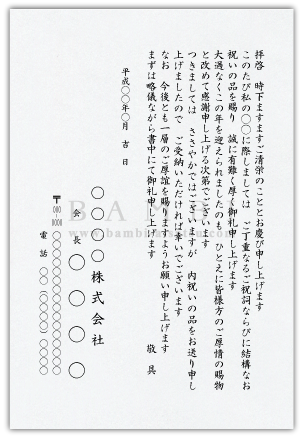 拝啓　時下ますますご清栄のこととお慶び申し上げます
このたび私の〇〇に際しましては　ご丁重なるご祝詞ならびに結構なお
祝いの品を賜り　誠に有難く厚く御礼申し上げます
大過なくこの年を迎えられましたのも　ひとえに皆様方のご厚情の賜物
と改めて感謝申し上げる次第でございます
つきましては　ささやかではございますが　内祝いの品をお送り申し
上げましたので　ご受納いただければ幸いでございます
なお　今後とも一層のご厚誼を賜りますようお願い申し上げます
まずは略儀ながら書中にて御礼申し上げます
敬具
平成〇〇年〇月　吉日
〇〇〇〇株式会社
会長　〇〇〇〇
〒000-0000
〇〇〇〇〇〇〇〇〇〇〇〇
電話　〇〇〇（〇〇〇）〇〇〇〇